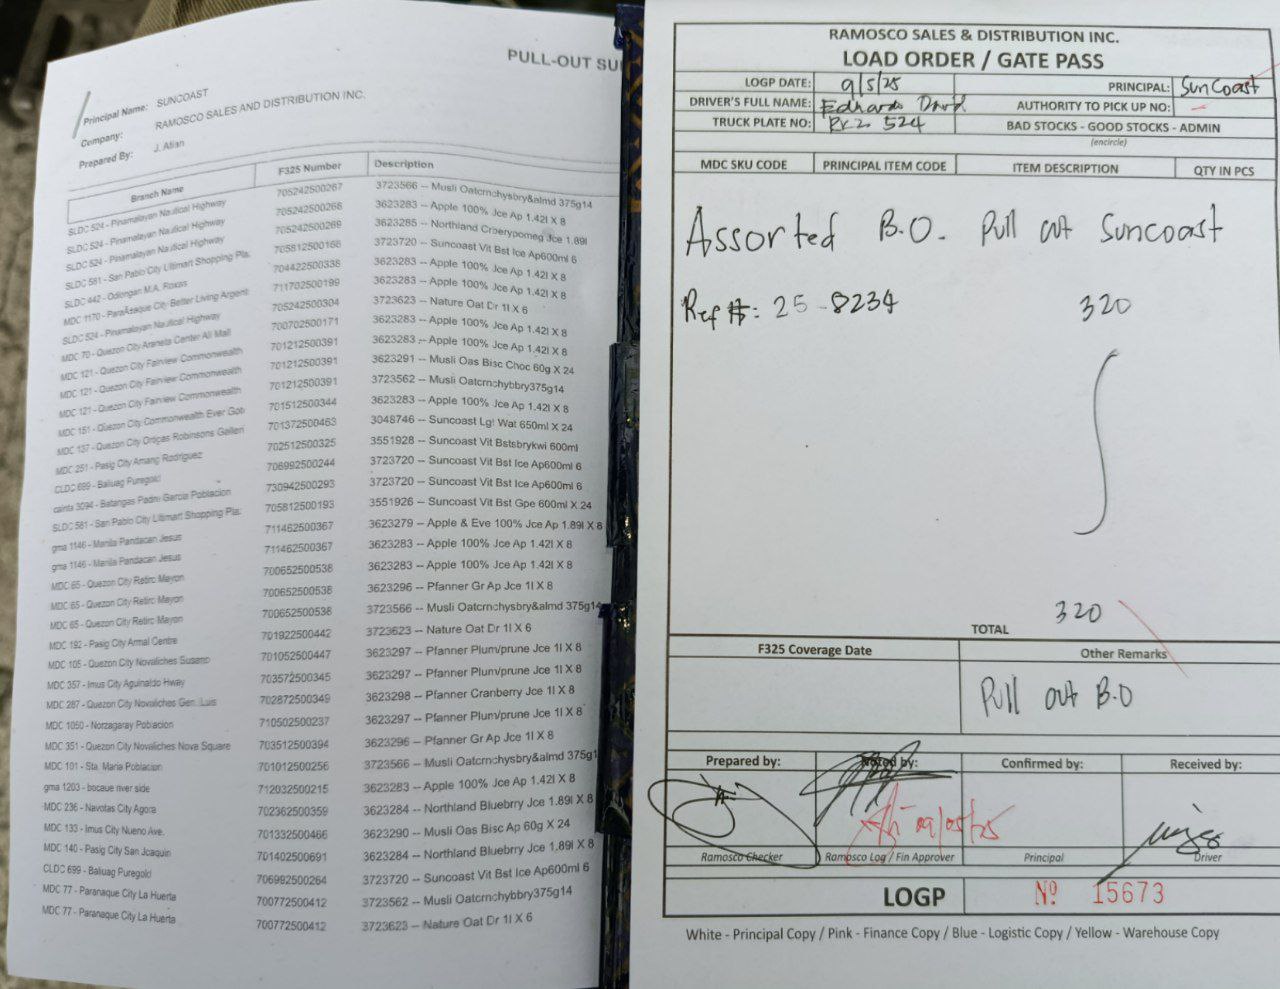 PULL-OUT SU
Principal Name: SUNCOAST
Company: RAMOSCO SALES AND DISTRIBUTION INC.
Prepared By: J. Atian
Branch Name F325 Number Description
SLDC 524 - Pinamalayan Nautical Highway 705242500267 3723566 -- Musli Oatcrnchysbry&almd 375g14
SLDC 524 - Pinamalayan Nautical Highway 705242500268 3623283 -- Apple 100% Jce Ap 1.42l X 8
SLDC 524 - Pinamalayan Nautical Highway 705242500269 3623285 -- Northland Crberypomeg Jce 1.89l
SLDC 581 - San Pablo City Ultimart Shopping Pla. 705812500168 3723720 -- Suncoast Vit Bst Ice Ap600ml 6
SLDC 442 - Odiongan M.A. Roxas 704422500338 3623283 -- Apple 100% Jce Ap 1.42l X 8
MDC 1170 - ParaÃ±aque City Better Living Argent 711702500199 3623283 -- Apple 100% Jce Ap 1.42l X 8
SLDC 524 - Pinamalayan Nautical Highway 705242500304 3723623 -- Nature Oat Dr 1l X 6
MDC 70 - Quezon City Araneta Center Ali Mall 700702500171 3623283 -- Apple 100% Jce Ap 1.42l X 8
MDC 121 - Quezon City Fairview Commonwealth 701212500391 3623283 -- Apple 100% Jce Ap 1.42l X 8
MDC 121 - Quezon City Fairview Commonwealth 701212500391 3623291 -- Musli Oas Bisc Choc 60g X 24
MDC 121 - Quezon City Fairview Commonwealth 701212500391 3723562 -- Musli Oatcrnchybbry375g14
MDC 151 - Quezon City Commonwealth Ever Goti 701512500344 3623283 -- Apple 100% Jce Ap 1.42l X 8
MDC 137 - Quezon City Ortigas Robinsons Galleri 701372500463 3048746 -- Suncoast Lgt Wat 650ml X 24
MDC 251 - Pasig City Amang Rodriguez 702512500325 3551928 -- Suncoast Vit Bstsbrykwi 600ml
CLDC 699 - Baliuag Puregold 706992500244 3723720 -- Suncoast Vit Bst Ice Ap600ml 6
cainta 3094 - Batangas Padre Garcia Poblacion 730942500293 3723720 -- Suncoast Vit Bst Ice Ap600ml 6
SLDC 581 - San Pablo City Ultimart Shopping Pla. 705812500193 3551926 -- Suncoast Vit Bst Gpe 600ml X 24
gma 1146 - Manila Pandacan Jesus 711462500367 3623279 -- Apple & Eve 100% Jce Ap 1.89l X 8
gma 1146 - Manila Pandacan Jesus 711462500367 3623283 -- Apple 100% Jce Ap 1.42l X 8
MDC 65 - Quezon City Retiro Mayon 700652500538 3623283 -- Apple 100% Jce Ap 1.42l X 8
MDC 65 - Quezon City Retiro Mayon 700652500538 3623296 -- Pfanner Gr Ap Jce 1l X 8
MDC 65 - Quezon City Retiro Mayon 700652500538 3723566 -- Musli Oatcrnchysbry&almd 375g14
MDC 192 - Pasig City Armal Centre 701922500442 3723623 -- Nature Oat Dr 1l X 6
MDC 105 - Quezon City Novaliches Susano 701052500447 3623297 -- Pfanner Plum/prune Jce 1l X 8
MDC 357 - Imus City Aguinaldo Hway 703572500345 3623297 -- Pfanner Plum/prune Jce 1l X 8
MDC 287 - Quezon City Novaliches Gen. Luis 702872500349 3623298 -- Pfanner Cranberry Jce 1l X 8
MDC 1050 - Norzagaray Poblacion 710502500237 3623297 -- Pfanner Plum/prune Jce 1l X 8
MDC 351 - Quezon City Novaliches Nova Square 703512500394 3623296 -- Pfanner Gr Ap Jce 1l X 8
MDC 101 - Sta. Maria Poblacion 701012500256 3723566 -- Musli Oatcrnchysbry&almd 375g1
gma 1203 - bocaue river side 712032500215 3623283 -- Apple 100% Jce Ap 1.42l X 8
MDC 236 - Navotas City Agora 702362500359 3623284 -- Northland Bluebrry Jce 1.89l X 8
MDC 133 - Imus City Nueno Ave. 701332500466 3623290 -- Musli Oas Bisc Ap 60g X 24
MDC 140 - Pasig City San Joaquin 701402500691 3623284 -- Northland Bluebrry Jce 1.89l X 8
CLDC 699 - Baliuag Puregold 706992500264 3723720 -- Suncoast Vit Bst Ice Ap600ml 6
MDC 77 - Paranaque City La Huerta 700772500412 3723562 -- Musli Oatcrnchybbry375g14
MDC 77 - Paranaque City La Huerta 700772500412 3723623 -- Nature Oat Dr 1l X 6
RAMOSCO SALES & DISTRIBUTION INC.
LOAD ORDER / GATE PASS
LOGP DATE: 9/5/25 PRINCIPAL: SunCoast
DRIVER'S FULL NAME: Edhardo David AUTHORITY TO PICK UP NO: -
TRUCK PLATE NO: 524 BAD STOCKS - GOOD STOCKS - ADMIN
(encircle)
MDC SKU CODE PRINCIPAL ITEM CODE ITEM DESCRIPTION QTY IN PCS
Assorted B.O. Pull out Suncoast
Ref #: 25-8234 320
320
TOTAL
F325 Coverage Date Other Remarks
Pull out B.O
Prepared by: Noted by: Confirmed by: Received by:
09/05/25
Ramosco Checker Ramosco Log / Fin Approver Principal Driver
LOGP Nº 15673
White - Principal Copy / Pink - Finance Copy / Blue - Logistic Copy / Yellow - Warehouse Copy